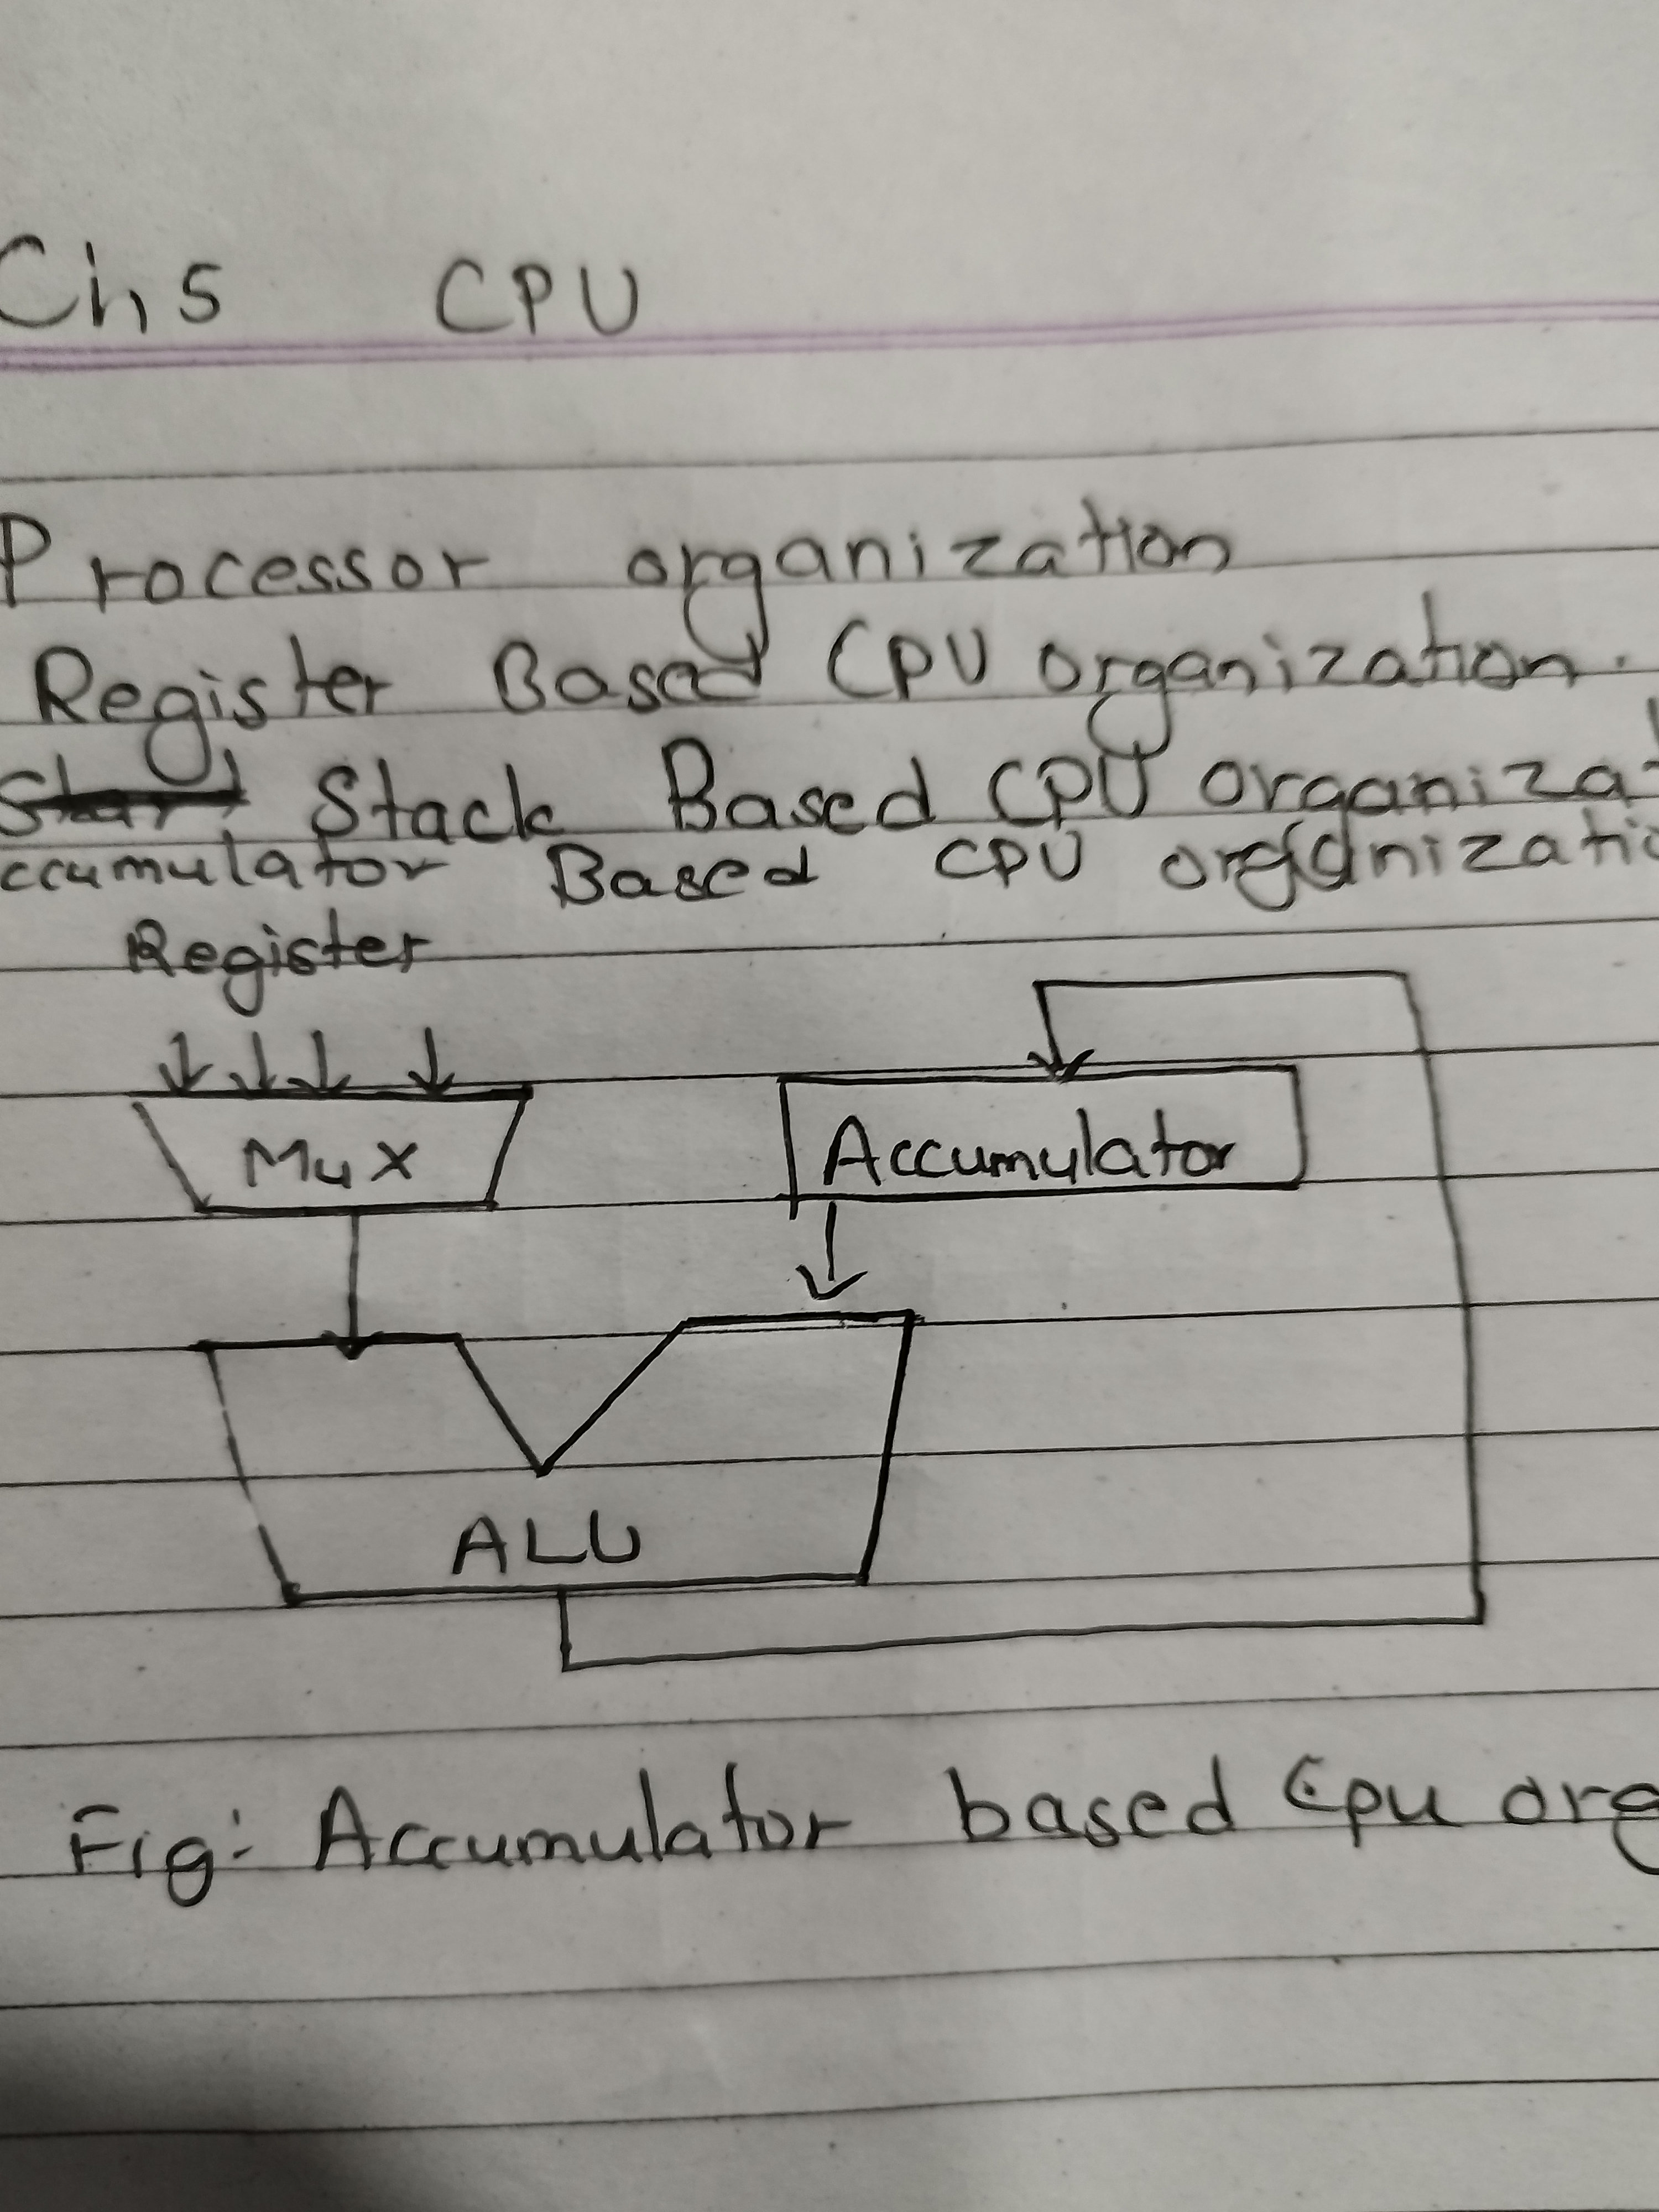 Ch 5 CPU
Processor organization
Register Based CPU organization.
Stack Based CPU organizat
ccumulator Based CPU organizatio
Register
Mux
Accumulator
ALU
Fig: Accumulator based Cpu org